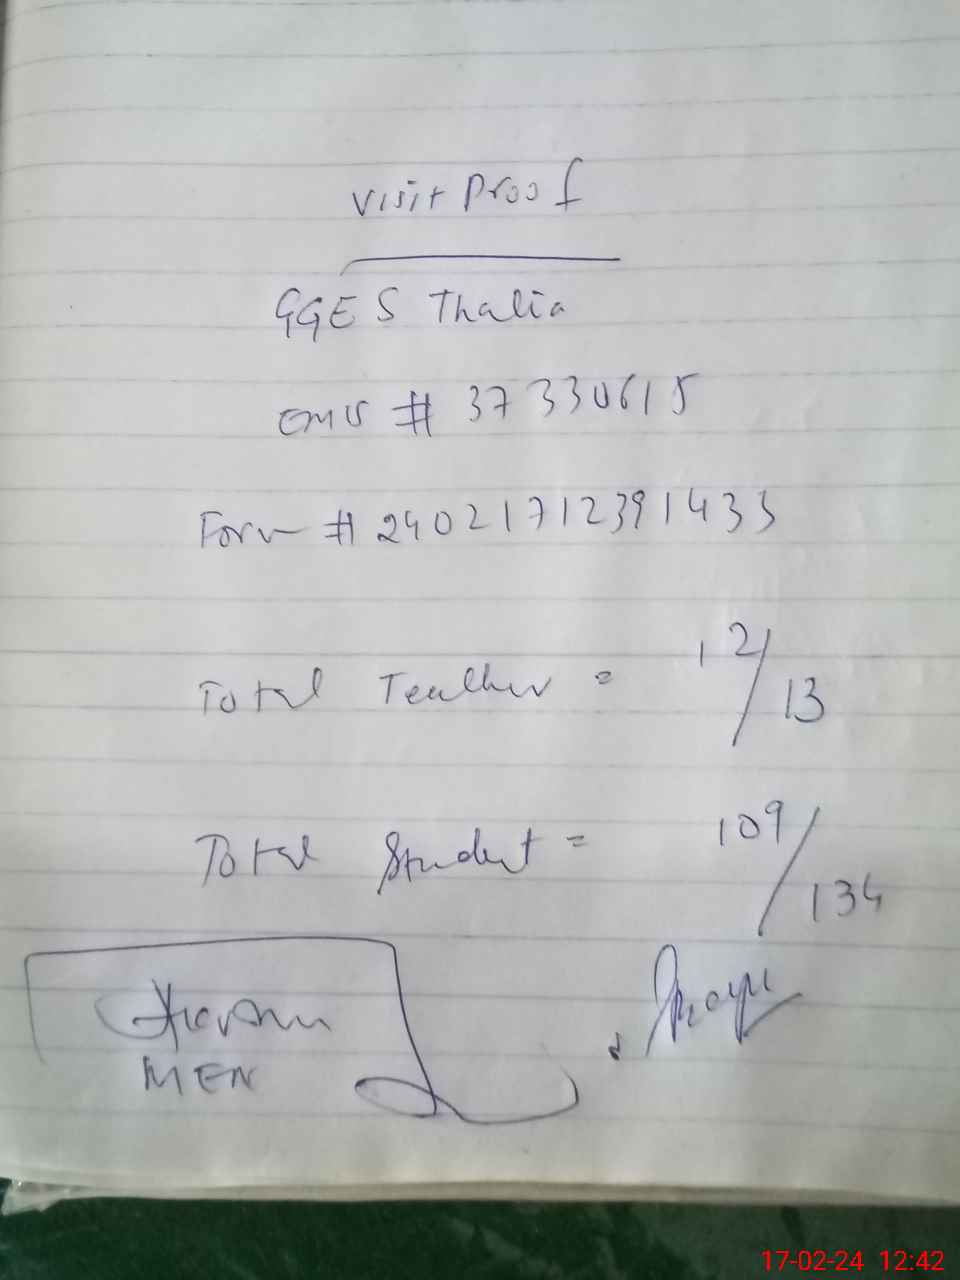 Visit Proof
GGES Thalia
EMIS # 37330615
Form # 24021712391433
Total Teacher = 12/13
Total Student = 109/134
MEN
17-02-24 12:42